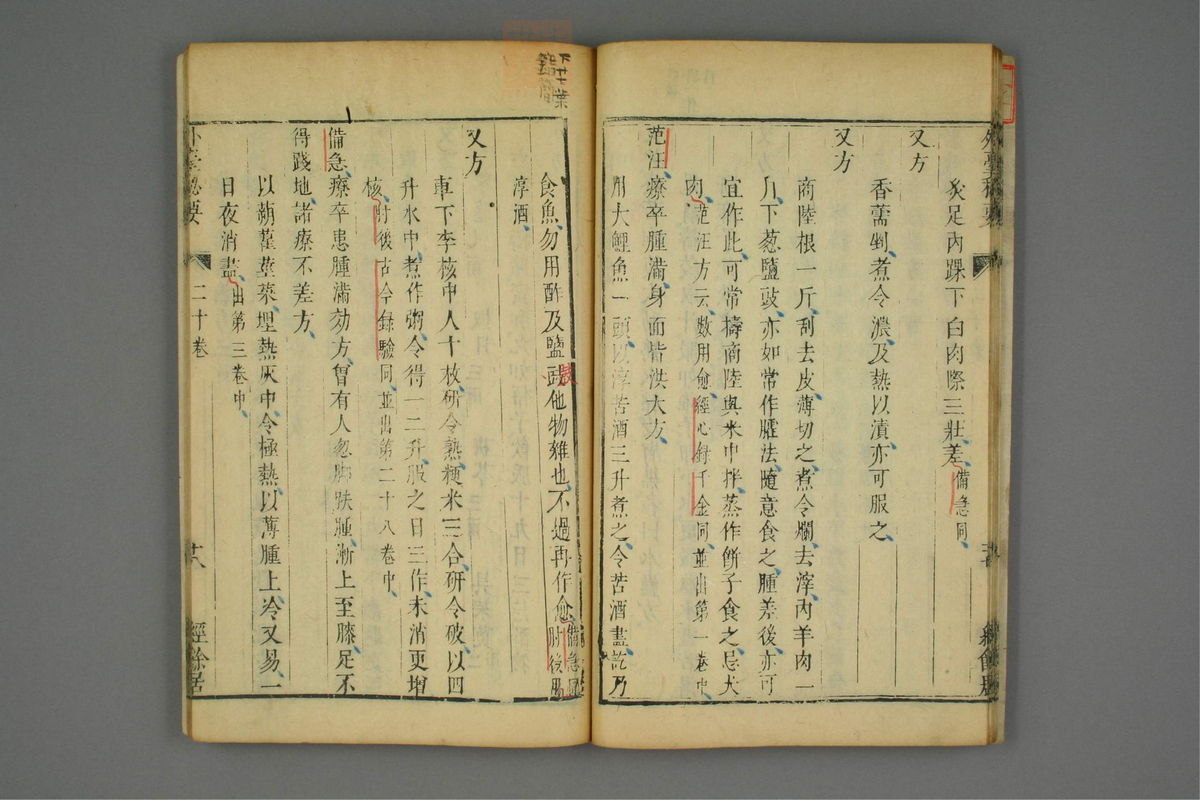 灸足內踝下白肉際三壯差備急同
又方
香薷剉煮令濃及熱以漬亦可服之
又方
商陸根一斤刮去皮薄切之煮令爛去滓內羊肉一
斤下葱鹽豉亦如常作臛法隨意食之腫差後亦可
宜作此可常擣商陸與米中拌蒸作餅子食之忌犬
肉范汪方云數用愈經心錄千金同並出第一卷中
范汪療卒腫滿身面皆洪大方
用大鯉魚一頭以淳苦酒三升煮之令苦酒盡訖乃
食魚勿用酢及鹽豉他物雜也不過再作愈備急同肘後用
淳酒
又方
車下李核中人十枚研令熟粳米三合研令破以四
升水中煮作粥令得一二升服之日三作未消更增
核肘後古今錄驗同並出第二十八卷中
備急療卒患腫滿効方曾有人忽脚趺腫漸上至膝足不
得踐地諸療不差方
以蒴藋莖葉埋熱灰中令極熱以薄腫上冷又易一
日夜消盡出第三卷中
外臺秘要 二十卷 十八 經餘居